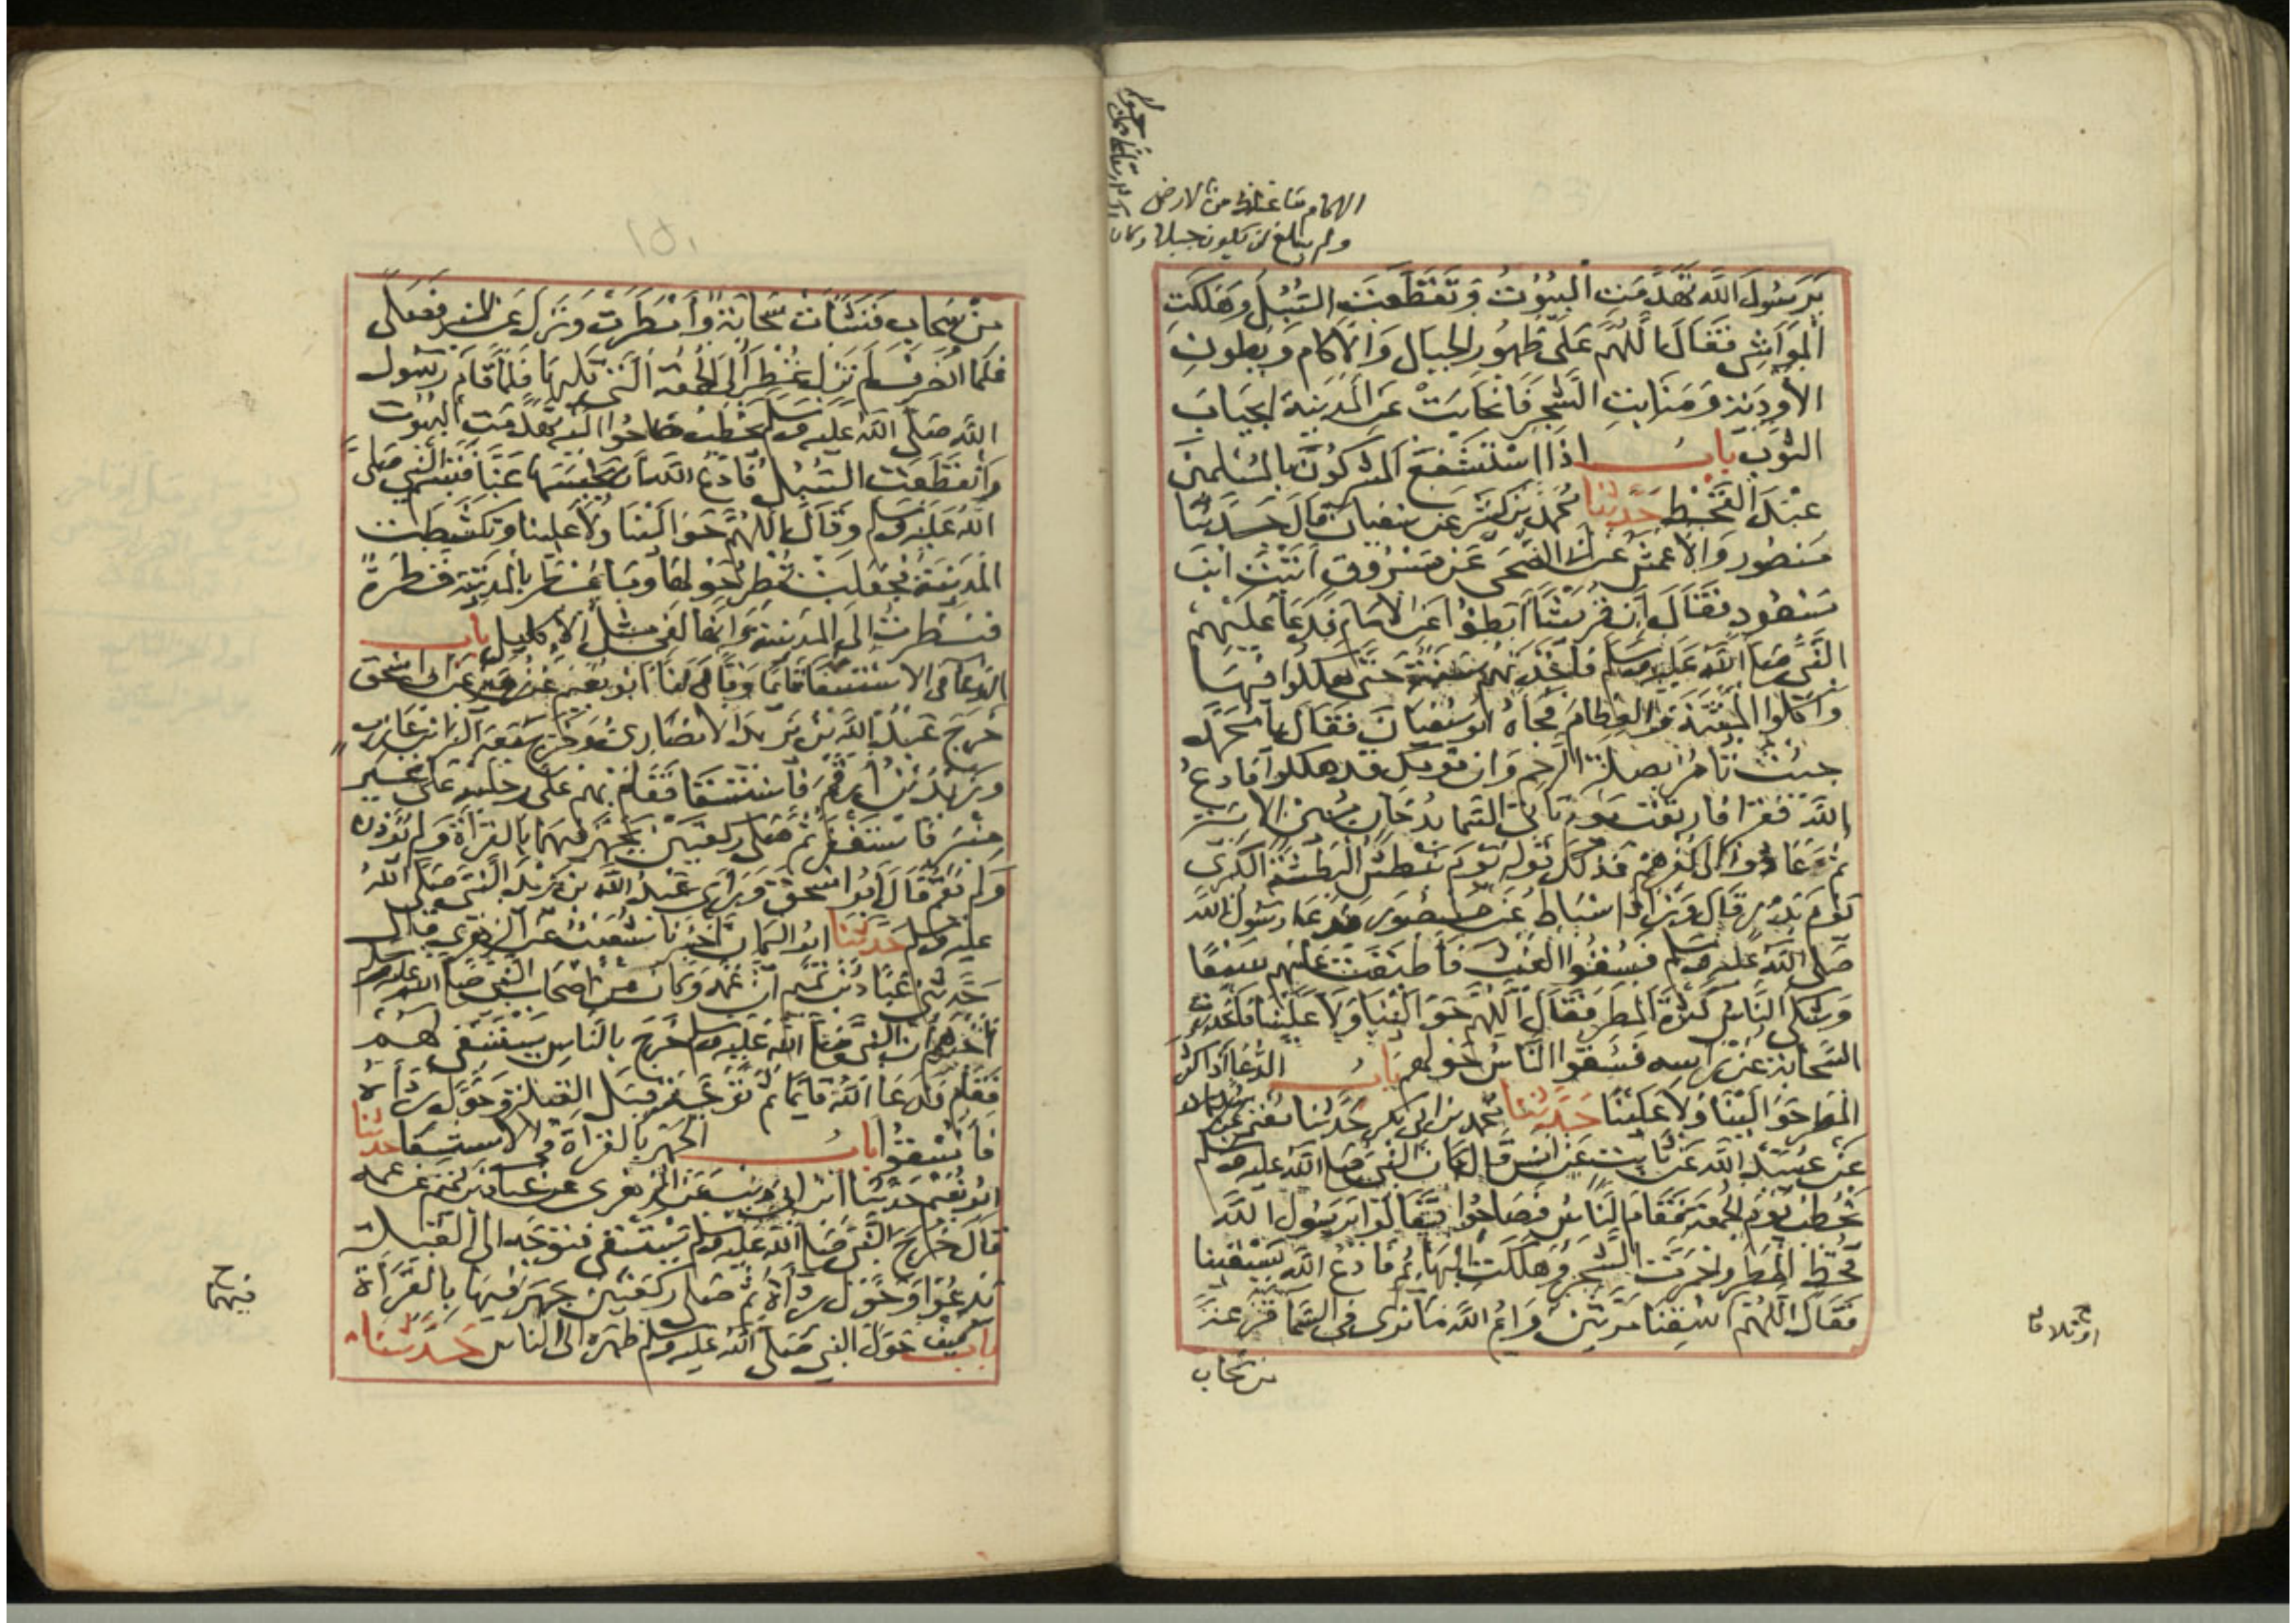 الاكام ما غلظ من الارض
ولم يبلغ ان يكون جبلا وكان
يرسول الله تهدمت البيوت وتقطعت السبل وهلكت
المواشي فقال اللهم على ظهور الجبال والاكام وبطون
الاودية ومنابت الشجر فانجابت عن المدينة انجياب
الثوب باب اذا استشفع المشركون بالمسلمين
عند القحط حدثنا محمد بن كثير عن سفيان قال حدثنا
منصور والاعمش عن ابي الضحى عن مسروق اتيت ابن
مسعود فقال ان قريشا ابطؤا عن الاسلام فدعا عليهم
النبي صلى الله عليه وسلم فاخذتهم سنة حتى هلكوا فيها
واكلوا الميتة والعظام فجاه ابو سفيان فقال يا محمد
جيت تامر بصلة الرحم وان قومك قد هلكوا فادع
الله فقرا فارتقب يوم تاتي السما بدخان مبين الاية
ثم عادوا الى كفرهم فذلك قوله يوم نبطش البطشة الكبرى
يوم بدر قال وزاد اسباط عن منصور فدعا رسول الله
صلى الله عليه وسلم فسقوا الغيث فاطبقت عليهم سبعا
وشكى الناس كثرة المطر فقال اللهم حوالينا ولا علينا فانحدرت
السحابة عن راسه فسقوا الناس حولهم باب الدعا اذا كثر
المطر حوالينا ولا علينا حدثنا محمد بن ابي بكر حدثنا معتمر
عن عبيد الله عن ثابت عن انس قال كان النبي صلى الله عليه وسلم
يخطب يوم الجمعة فقام الناس فصاحوا فقالوا يرسول الله
قحط المطر واحمرت الشجر وهلكت البهايم فادع الله يسقينا
فقال اللهم اسقنا مرتين وايم الله ما نرى في السما قزعة
من سحاب
من سحاب فنشات سحابة وامطرت ونزل عن المنبر فصلى
فلما انصرف لم تزل تمطر الى الجمعة التي تليها فلما قام رسول
الله صلى الله عليه وسلم يخطب صاحوا اليه تهدمت البيوت
وانقطعت السبل فادع الله يحبسها عنا فتبسم النبي صلى
الله عليه وسلم وقال اللهم حوالينا ولا علينا وتكشطت
المدينة فجعلت تمطر حولها وما تمطر بالمدينة قطرة
فنظرت الى المدينة وانها لفي مثل الاكليل باب
الدعا في الاستسقا قائما وقال لنا ابو نعيم عن زهير عن ابي اسحق
خرج عبد الله بن يزيد الانصاري وخرج معه البراء بن عازب
وزيد بن ارقم فاستسقا فقام بهم على رجليه على غير
منبر فاستغفر ثم صلى ركعتين يجهر فيهما بالقراة ولم يؤذن
ولم يقم قال ابو اسحق وراى عبد الله بن يزيد النبي صلى الله
عليه وسلم حدثنا ابو اليمان اخبرنا شعيب عن الزهري قال
حدثني عباد بن تميم ان عمه وكان من اصحاب النبي صلى الله عليه وسلم
اخبره ان النبي صلى الله عليه وسلم خرج بالناس يستسقي لهم
فقام فدعا الله قايما ثم توجه قبل القبلة وحول رداه
فاسقوا باب الجهر بالقراة في الاستسقا حدثنا
ابو نعيم حدثنا ابن ابي ذيب عن الزهري عن عباد بن تميم عن عمه
قال خرج النبي صلى الله عليه وسلم يستسقي فتوجه الى القبلة
يدعوا وحول رداه ثم صلى ركعتين جهر فيها بالقراة
باب كيف حول النبي صلى الله عليه وسلم ظهره الى الناس حدثنا
فيهما